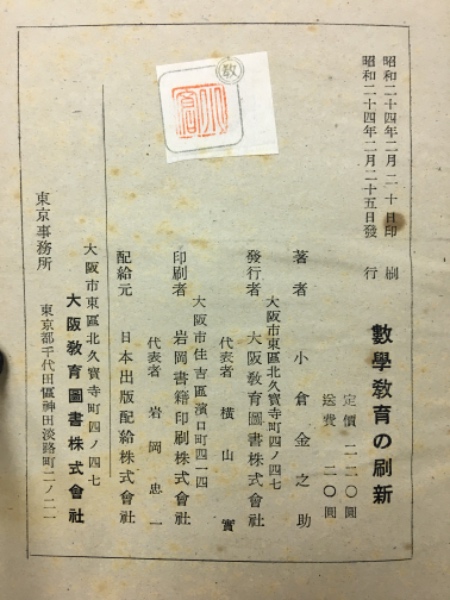 昭和二十四年二月二十日印刷
昭和二十四年二月二十五日發行
數學教育の刷新
定價 二二〇圓
送費 二〇圓
著者 小倉金之助
大阪市東區北久寶寺町四ノ四七
發行者 大阪教育圖書株式會社
代表者 橫山實
大阪市住吉區濱口町四一四
印刷者 岩岡書籍印刷株式會社
代表者 岩岡忠一
配給元 日本出版配給株式會社
大阪市東區北久寶寺町四ノ四七
大阪教育圖書株式會社
東京事務所 東京都千代田區神田淡路町二ノ二一
教
小倉